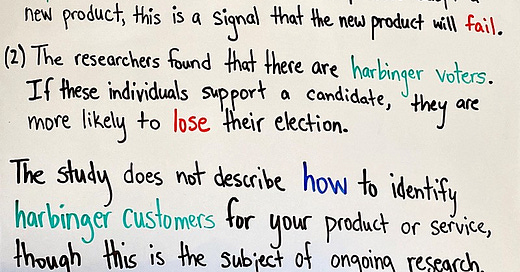 new product, this is a signal that the new product will fail.
(2) The researchers found that there are harbinger voters.
If these individuals support a candidate, they are
more likely to lose their election.
The study does not describe how to identify
harbinger customers for your product or service,
though this is the subject of ongoing research.